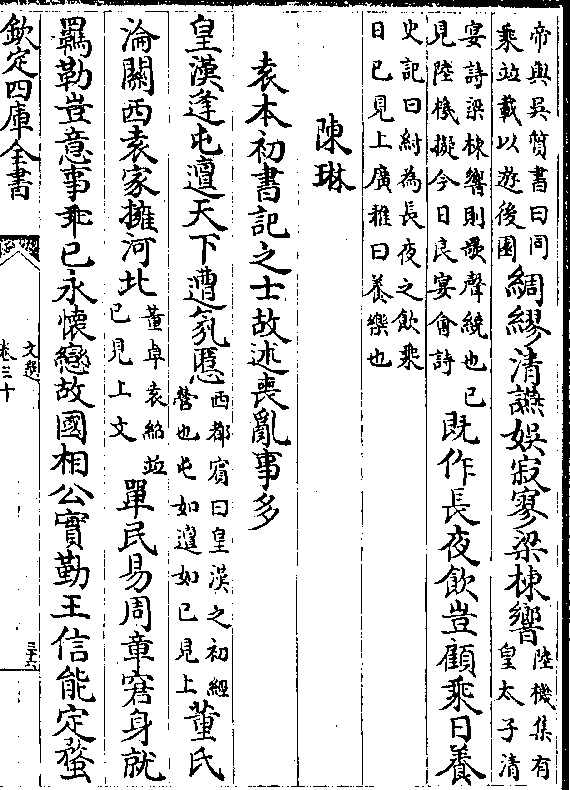 帝與吳質書曰同
乘竝載以遊後園
綢繆清讌娛寂寥梁棟響
陸機集有
皇太子清
宴詩梁棟響則歌聲繞也已
見陸機擬今日良宴會詩
既作長夜飲豈顧乘日養
史記曰紂為長夜之飲乘
日已見上廣雅曰養樂也
陳琳
袁本初書記之士故述喪亂事多
皇漢逢屯邅天下遭氛慝
西都賓曰皇漢之初經
營也屯如邅如已見上
董氏
淪關西袁家擁河北
董卓袁紹竝
已見上文
單民易周章窘身就
羈勒豈意事乖已永懷戀故國相公實勤王信能定蝥
欽定四庫全書
文選
卷三十